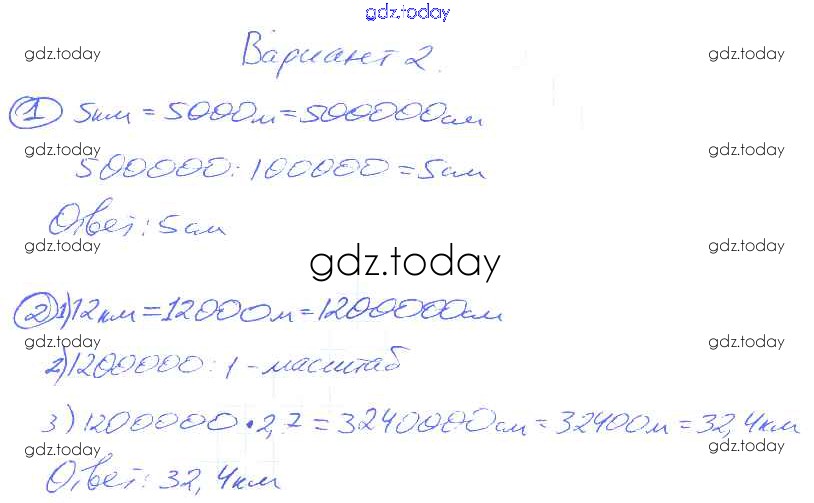 gdz.today
gdz.today gdz.today
Вариант 2.
1 5км = 5000м = 500000см
gdz.today gdz.today
500000 : 100000 = 5см
Ответ: 5см
gdz.today gdz.today
gdz.today
2 1) 12км = 12000м = 1200000см
gdz.today gdz.today
2) 1200000 : 1 - масштаб
3) 1200000 • 2,7 = 3240000см = 32400м = 32,4км
gdz.today gdz.today
Ответ: 32,4км